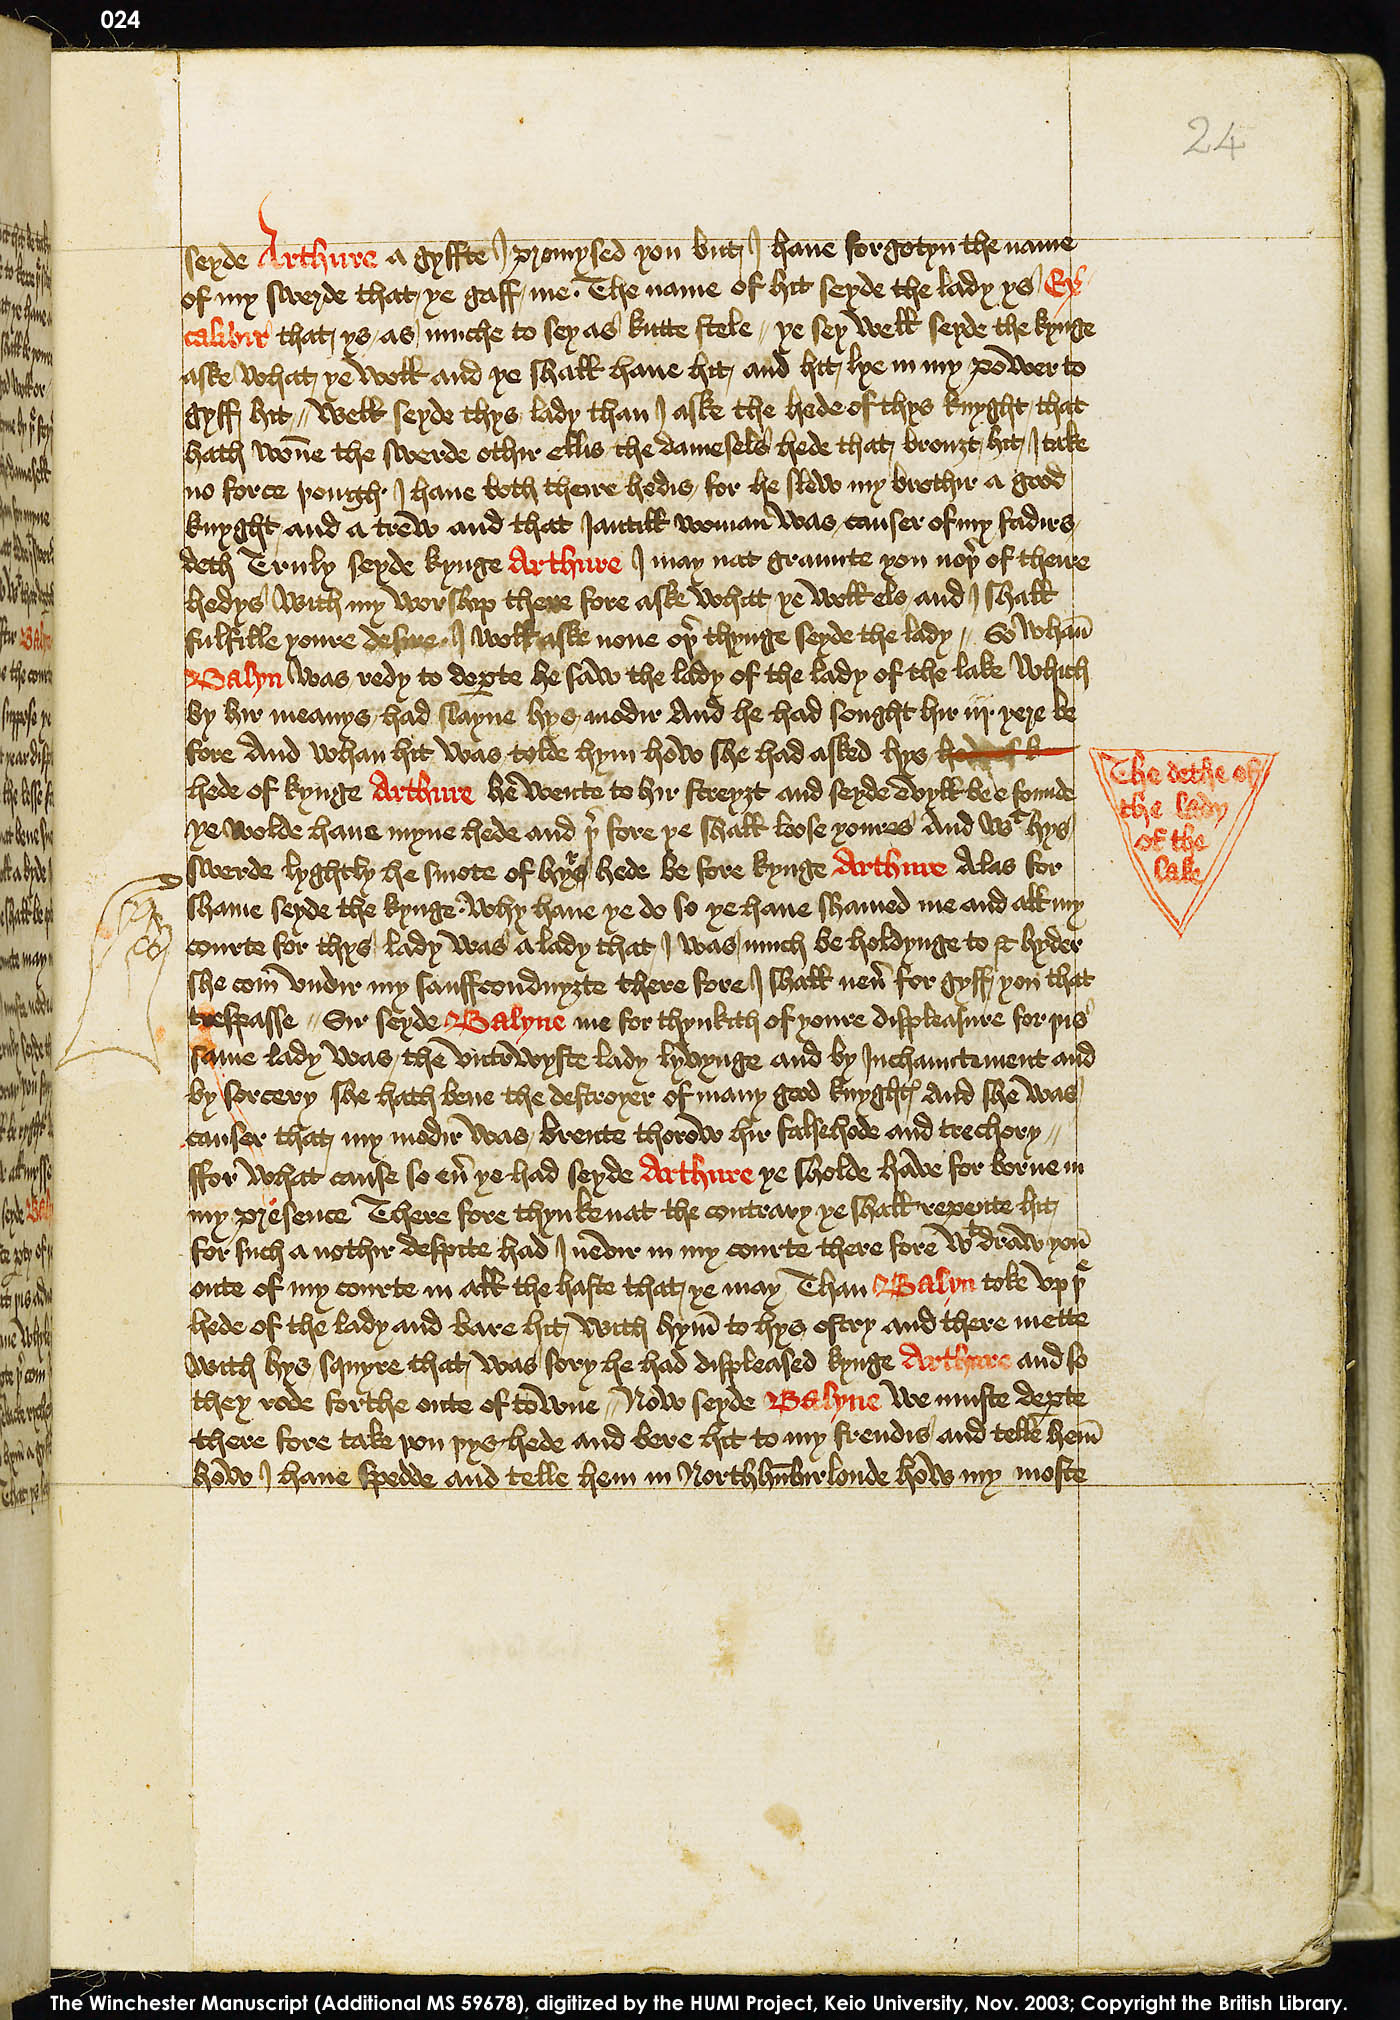 024
24
seyde Arthure a gyffte I promysed you but I haue forgotyn the name
of my swerde that ye gaff me. The name of hit seyde the lady ys Ex
calibir that ys as muche to sey as kutte stele // ye sey well seyde the kynge
aske what ye woll and ye shall haue hit and hit lye in my power to
gyff hit // Well seyde thys lady than I aske the hede of thys knyght that
hath wōne the swerde othir ellis the damesels hede that brouȝt hit I take
no force þough I haue both theire hedis for he slew my brothir a good
knyght and a trew and that Iantill woman was causer of my fadirs
deth Truly seyde kynge Arthure I may nat graunte you noþ̄ of theire
hedys with my worship there fore aske what ye woll els and I shall
fulfille youre desire I woll aske none oþ̄ thynge seyde the lady // So whan̄
Balyn was redy to deꝑte he saw the lady of the lady of the lake which
by hir meanys had slayne hys modir And he had sought hir iij yere be
fore And whan hit was tolde hym how she had asked hys
hede of kynge Arthure he wente to hir streyȝt and seyde evyll be e founde
ye wolde haue myne hede and þ̄ fore ye shall loose youres And wᵗ hys
swerde lyghtly he smote of hys hede be fore kynge Arthure Alas for
shame seyde the kynge why haue ye do so ye haue shamed me and all my
courte for thys lady was a lady that I was much be holdynge to & hyder
she com̄ vndir my sauffconduyȝte there fore I shall neū for gyff you that
trespasse // Sir seyde Balyne me for thynkith of youre displeasure for þis
same lady was the vntrwyste lady lyvynge and by Inchauntement and
by sorcery she hath bene the destroyer of many good knyghtꝭ And she was
causer that my modir was brente thorow hir falsehode and trechory //
ffor what cause so eū ye had seyde Arthure ye sholde haue for borne in
my presence There fore thynke nat the contrary ye shall repente hit
for such a nothir despite had I nevir in my courte there fore wᵗdraw you
oute of my courte in all the haste that ye may Than Balyn toke vp þᵉ
hede of the lady and bare hit with hym̄ to hys ostry and there mette
with hys squyre that was sory he had displeased kynge Arthure and so
they rode forthe oute of towne // Now seyde Balyne we muste deꝑte
there fore take þou þys hede and bere hit to my frendis and telle hem̄
how I haue spedde and telle hem in Northhūbirlonde how my moste
The dethe of
the lady
of the
lake
The Winchester Manuscript (Additional MS 59678), digitized by the HUMI Project, Keio University, Nov. 2003; Copyright the British Library.